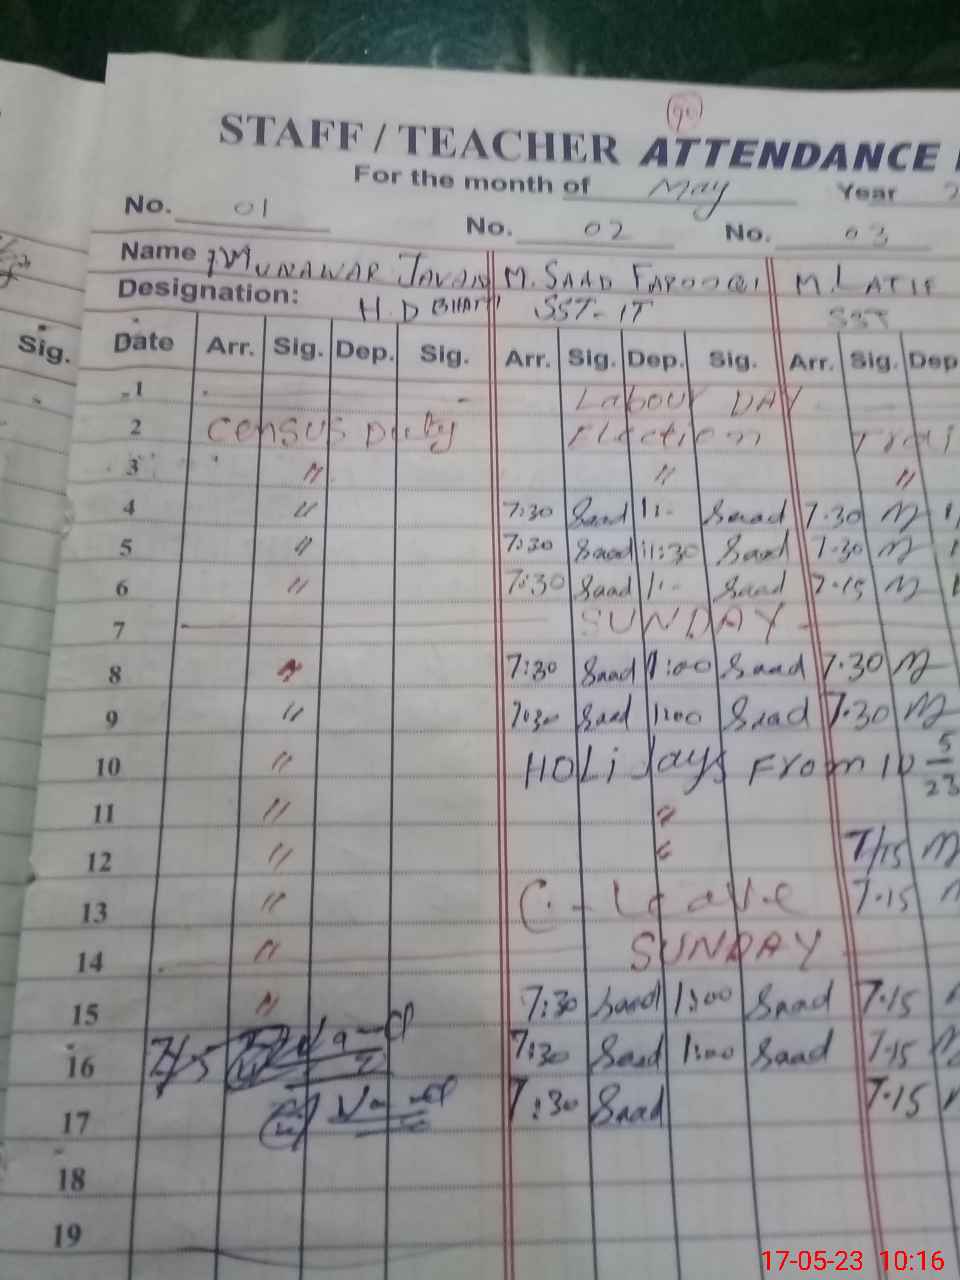 STAFF / TEACHER ATTENDANCE
For the month of May Year
No. 01 No. 02 No. 03
Name MUNAWAR JAVAID M. SAAD FAROOQI M. LATIF
Designation: H.D BHATTI SST-IT SST
Sig. Date Arr. Sig. Dep. Sig. Arr. Sig. Dep. Sig. Arr. Sig. Dep
1 Labour DAY
2 Census Duty Election
3 〃 〃 〃
4 〃 7:30 Saad 1:- Saad 7.30 M
5 〃 7:30 Saad 11:30 Saad 7.30 M
6 〃 7:30 Saad 1:- Saad 7.15 M
7 SUNDAY
8 〃 7:30 Saad 1:00 Saad 7.30 M
9 〃 7:30 Saad 1:00 Saad 7.30 M
10 〃 HOLidays From 10 5/23
11 〃 〃
12 〃 〃 7/15 M
13 〃 C.-Leave 7.15
14 〃 SUNDAY
15 〃 7:30 Saad 1:00 Saad 7.15
16 7:30 Saad 1:00 Saad 7.15 M
17 7:30 Saad 7.15
18
19
17-05-23 10:16